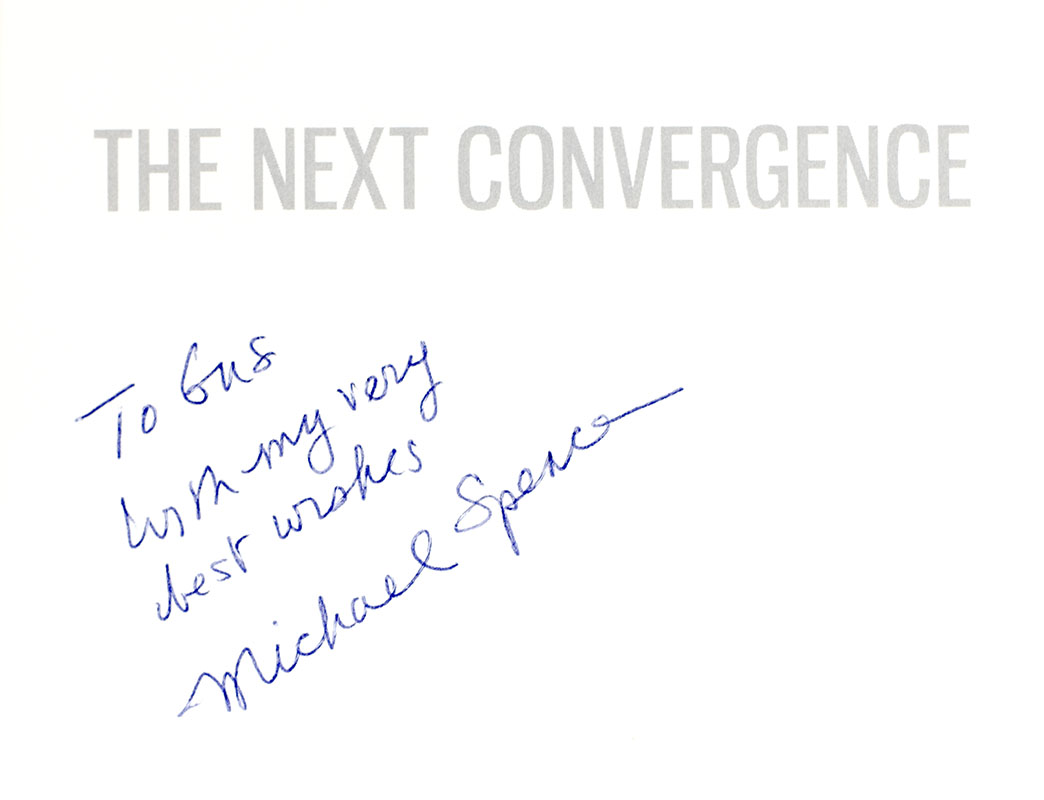 THE NEXT CONVERGENCE
To Gus
with my very
best wishes
Michael Spence